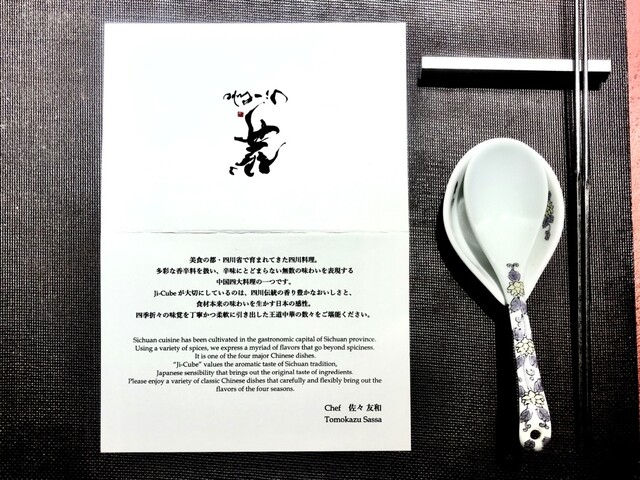 美食の都・四川省で育まれてきた四川料理。
多彩な香辛料を扱い、辛味にとどまらない無数の味わいを表現する
中国四大料理の一つです。
Ji-Cubeが大切にしているのは、四川伝統の香り豊かなおいしさと、
食材本来の味わいを生かす日本の感性。
四季折々の味覚を丁寧かつ柔軟に引き出した王道中華の数々をご堪能ください。
Sichuan cuisine has been cultivated in the gastronomic capital of Sichuan province.
Using a variety of spices, we express a myriad of flavors that go beyond spiciness.
It is one of the four major Chinese dishes.
“Ji-Cube” values the aromatic taste of Sichuan tradition,
Japanese sensibility that brings out the original taste of ingredients.
Please enjoy a variety of classic Chinese dishes that carefully and flexibly bring out the
flavors of the four seasons.
Chef 佐々 友和
Tomokazu Sassa